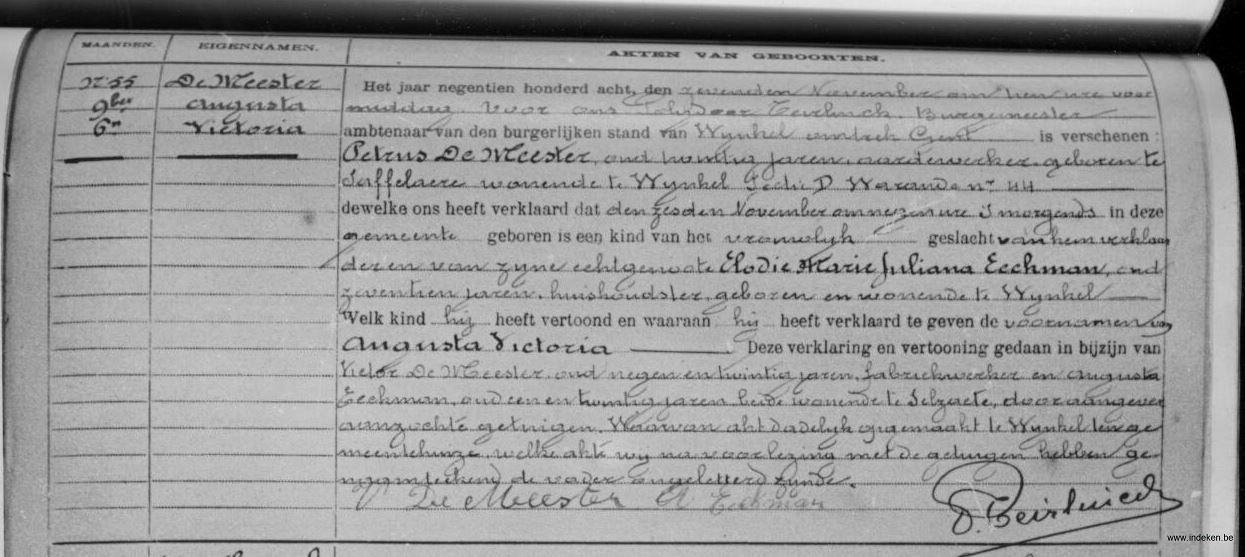 MAANDEN.
EIGENNAMEN.
AKTEN VAN GEBOORTEN.
Nr 55
9ber
6n
De Meester
Augusta
Victoria
Het jaar negentien honderd acht, den zevenden November om tien ure voor
middag voor ons Polydoor Teirlinck, Burgemeester
ambtenaar van den burgerlijken stand van Wynkel omtrek Gent is verschenen :
Petrus De Meester, oud twintig jaren, aardewerker, geboren te
Saffelaere wonende te Wynkel Sectie D Warande nr 44
dewelke ons heeft verklaard dat den zesden November om negen ure 's morgends in deze
gemeente geboren is een kind van het vrouwelyk geslacht van hem verklaar
der en van zyne echtgenoote Elodie Marie Juliana Eeckman, oud
zeventien jaren, huishoudster, geboren en wonende te Wynkel
Welk kind hij heeft vertoond en waaraan hij heeft verklaard te geven de voornamen van
Augusta Victoria Deze verklaring en vertooning gedaan in bijzijn van
Victor De Meester, oud negen en twintig jaren, fabriekwerker en Augusta
Eeckman, oud een en twintig jaren beide wonende te Selzaete, door aangever
aanzochte getuigen. Waarvan akt dadelyk opgemaakt te Wynkel ten ge
meentehuize, welke akte wy na voorlezing met de getuigen hebben ge-
naamteekend de vader ongeletterd zynde.
V De Meester A Eeckman
P. Teirlinck
www.indeken.be